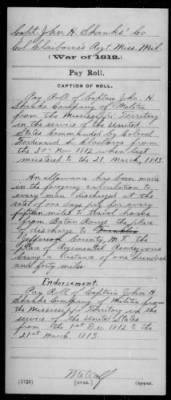 Capt. John H. Shanks' Co
Col. Claiborne's Regt. Miss. Mil.
(War of 1812.)
Pay Roll.
CAPTION OF ROLL.
Pay Roll of Captain John H.
Shanks Company of Militia
from the Mississippi Territory
in the service of the United
States Commanded by Colonel
Ferdinand L. Claiborne from
the Dec 1812 when last
mustered to the 21 March, 1813.
An allowance has been made
in the foregoing calculation to
every man discharged at the
rate of one days pay for every
fifteen miles to travel home
from Baton Rouge the place
of discharge to
Jefferson County, M.T. the
place of Regimental Rendezvous
being a distance of one hundred
and forty miles
Endorsement.
Pay Roll of Captain John H
Shanks Company of Militia from
the Mississippi Territory in the
service of the United States
from the 1st Dec 1812 to the
21st March, 1813.
Metcalf
(572) Copyist.